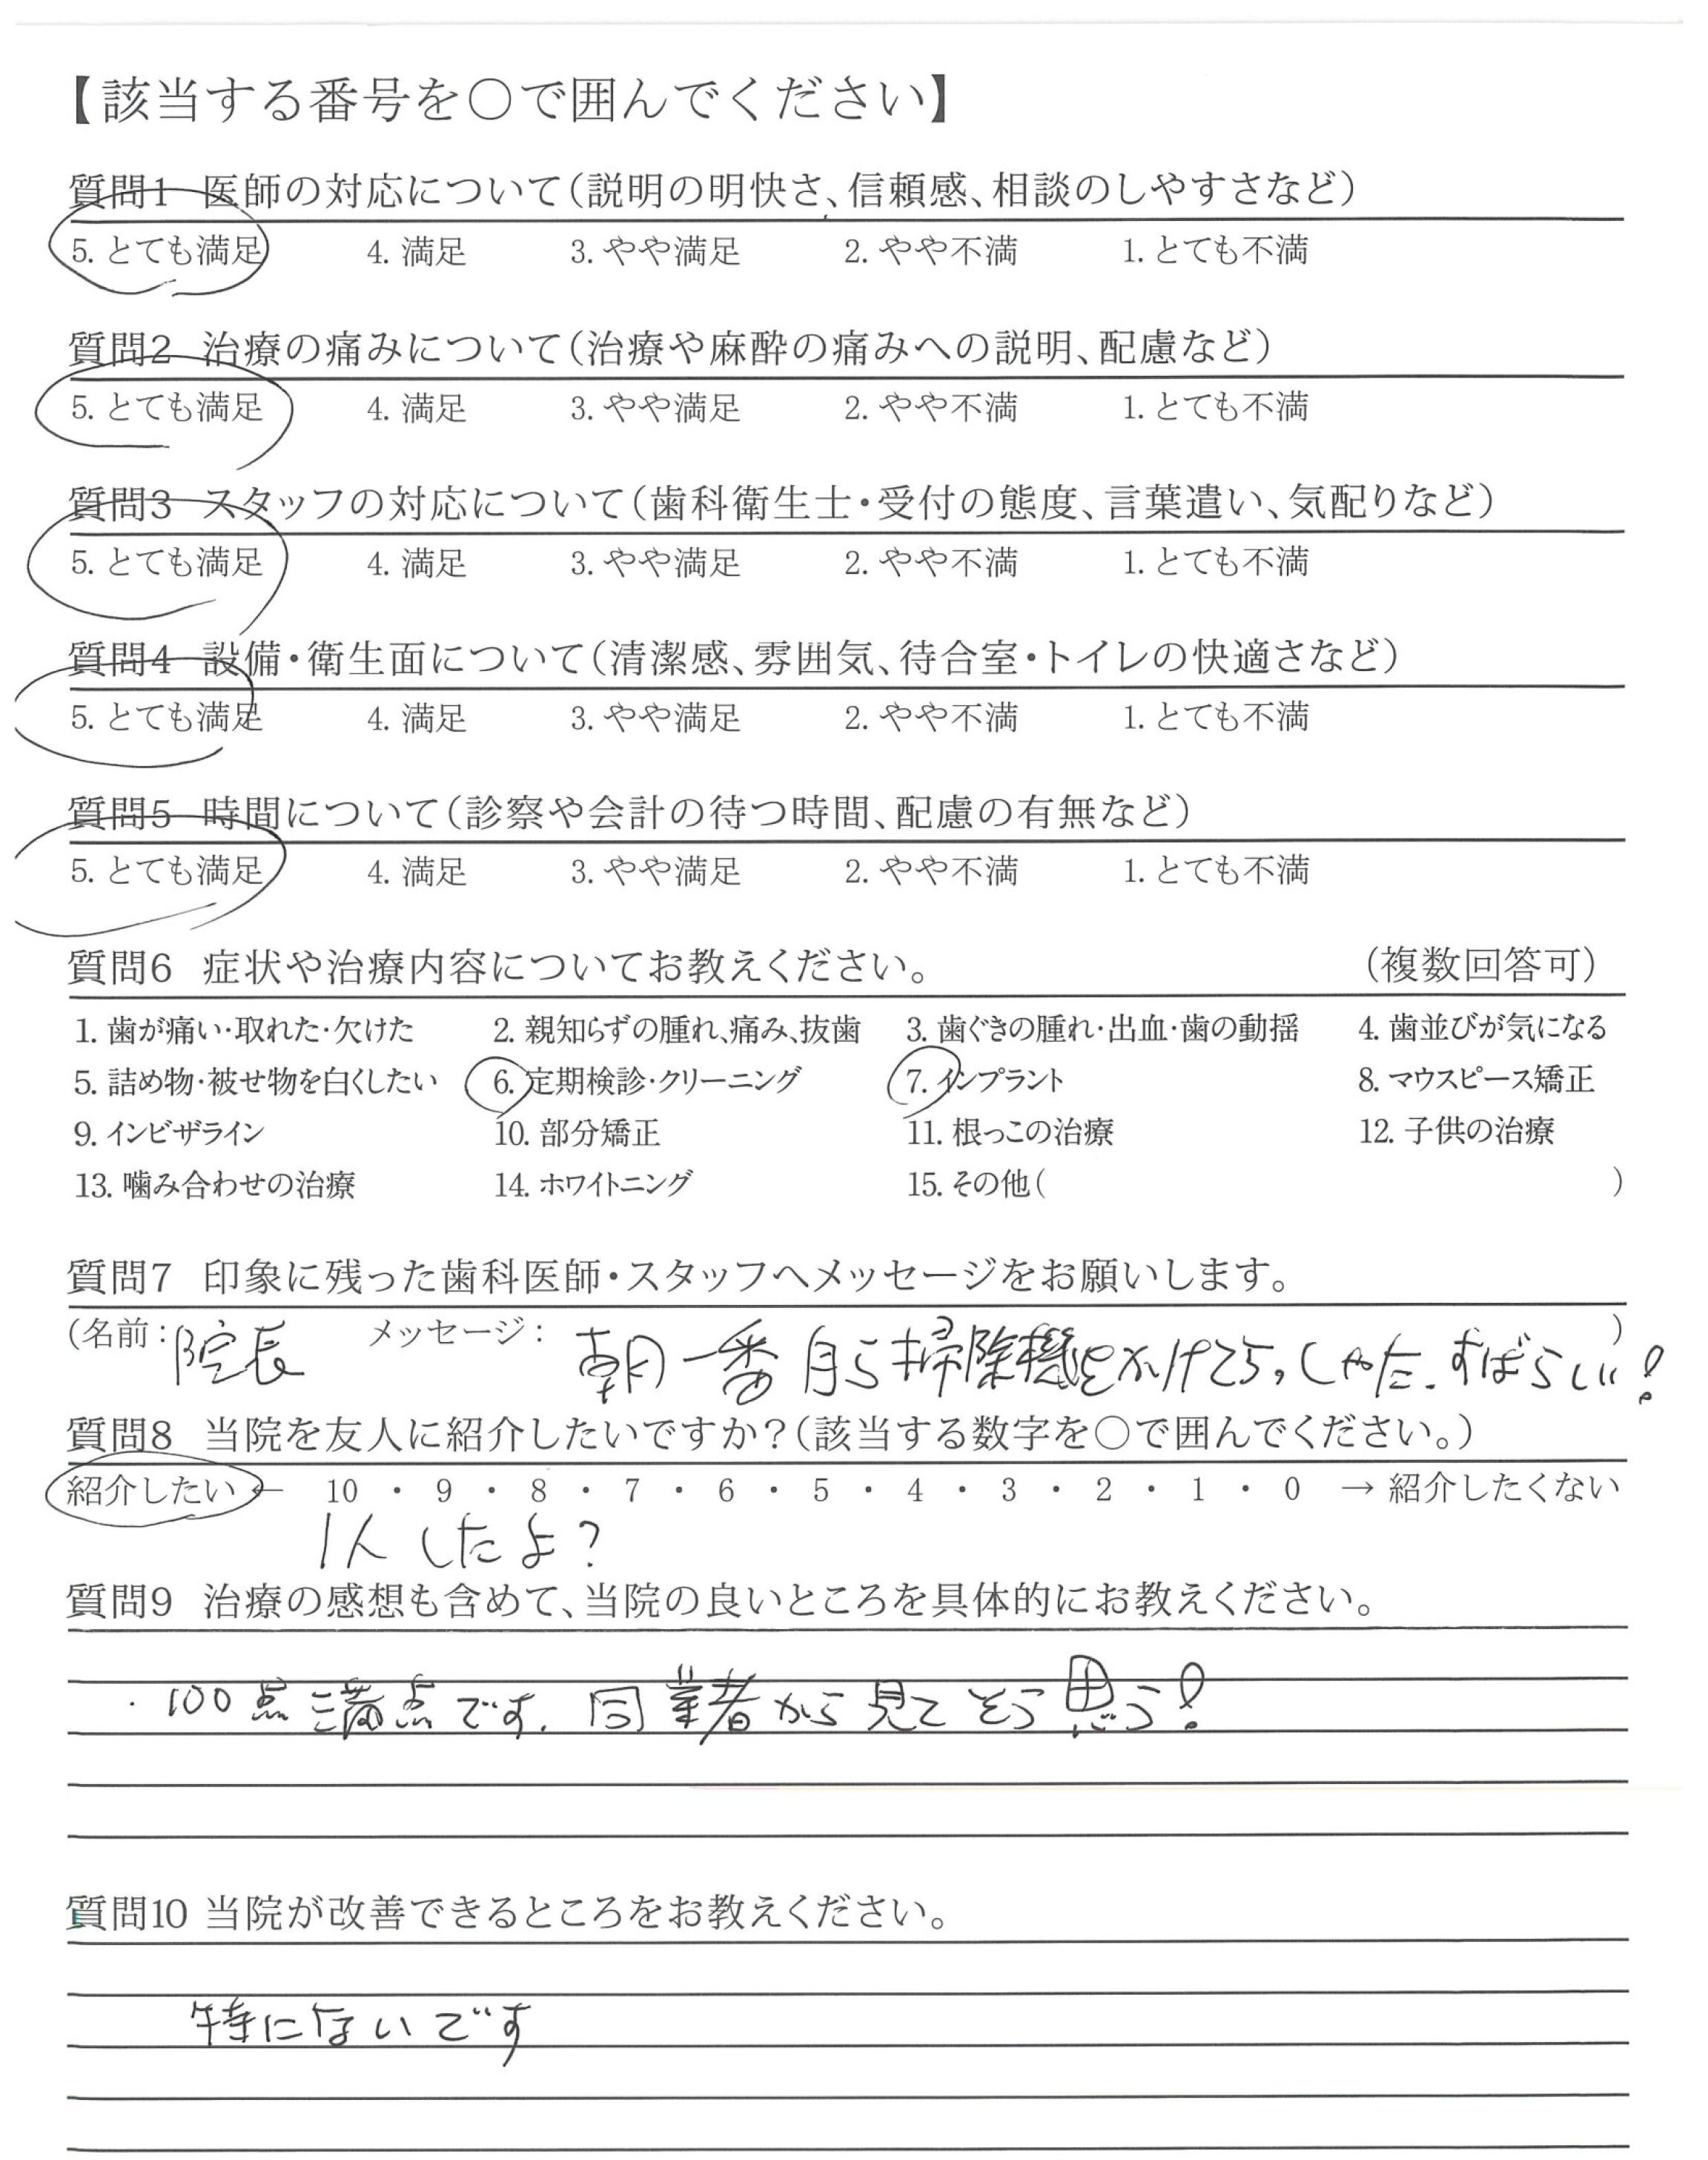 【該当する番号を〇で囲んでください】
質問1 医師の対応について(説明の明快さ、信頼感、相談のしやすさなど)
5. とても満足 4. 満足 3. やや満足 2. やや不満 1. とても不満
質問2 治療の痛みについて(治療や麻酔の痛みへの説明、配慮など)
5. とても満足 4. 満足 3. やや満足 2. やや不満 1. とても不満
質問3 スタッフの対応について(歯科衛生士・受付の態度、言葉遣い、気配りなど)
5. とても満足 4. 満足 3. やや満足 2. やや不満 1. とても不満
質問4 設備・衛生面について(清潔感、雰囲気、待合室・トイレの快適さなど)
5. とても満足 4. 満足 3. やや満足 2. やや不満 1. とても不満
質問5 時間について(診察や会計の待つ時間、配慮の有無など)
5. とても満足 4. 満足 3. やや満足 2. やや不満 1. とても不満
質問6 症状や治療内容についてお教えください。 (複数回答可)
1. 歯が痛い・取れた・欠けた 2. 親知らずの腫れ、痛み、抜歯 3. 歯ぐきの腫れ・出血・歯の動揺 4. 歯並びが気になる
5. 詰め物・被せ物を白くしたい 6. 定期検診・クリーニング 7. インプラント 8. マウスピース矯正
9. インビザライン 10. 部分矯正 11. 根っこの治療 12. 子供の治療
13. 噛み合わせの治療 14. ホワイトニング 15. その他( )
質問7 印象に残った歯科医師・スタッフへメッセージをお願いします。
(名前: 院長 メッセージ: 朝一番 自ら掃除機をかけてらっしゃた. すばらしい! )
質問8 当院を友人に紹介したいですか?(該当する数字を〇で囲んでください。)
紹介したい ← 10 ・ 9 ・ 8 ・ 7 ・ 6 ・ 5 ・ 4 ・ 3 ・ 2 ・ 1 ・ 0 → 紹介したくない
1人 したよ?
質問9 治療の感想も含めて、当院の良いところを具体的にお教えください。
・100点満点です. 同業者から見てそう思う!
質問10 当院が改善できるところをお教えください。
特にないです